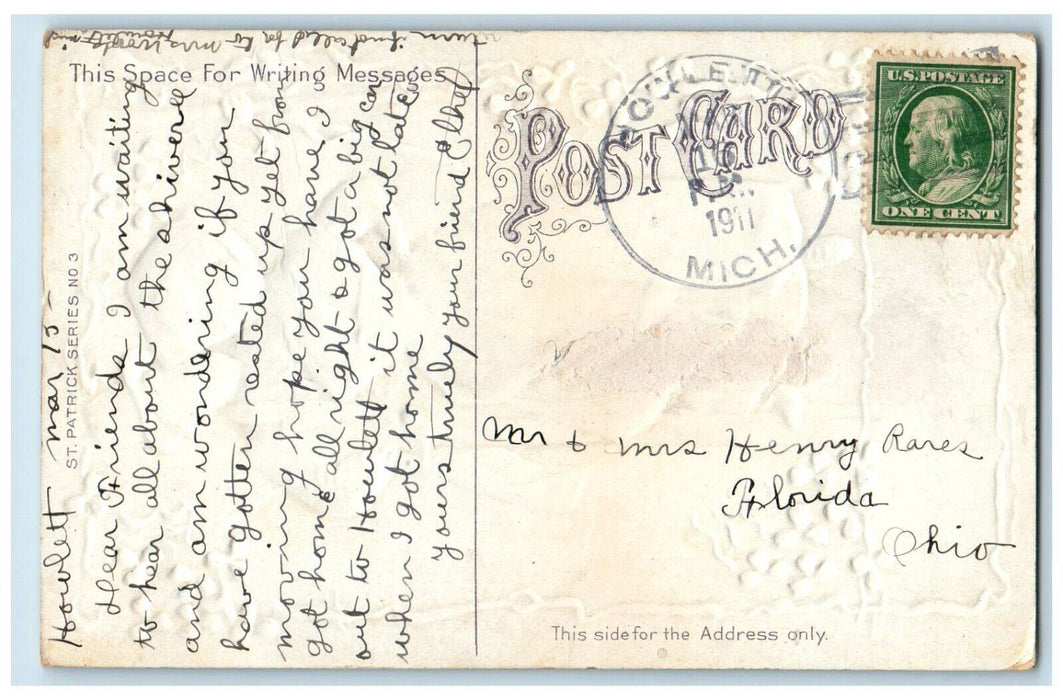 This Space For Writing Messages
Howlett Mar 15-
Dear Friends I am waiting
to hear all about the ashiverell
and am wondering if you
have gotten rested up yet from
mooving hope you have, I
got home all right & got a big con
out to Howlett it was not late
when I got home
yours truely your friend
ST. PATRICK SERIES NO 3
POST CARD
HOWLETT
1911
MICH.
U.S. POSTAGE
ONE CENT
Mr & Mrs Henry Rares
Florida
Ohio
This side for the Address only.